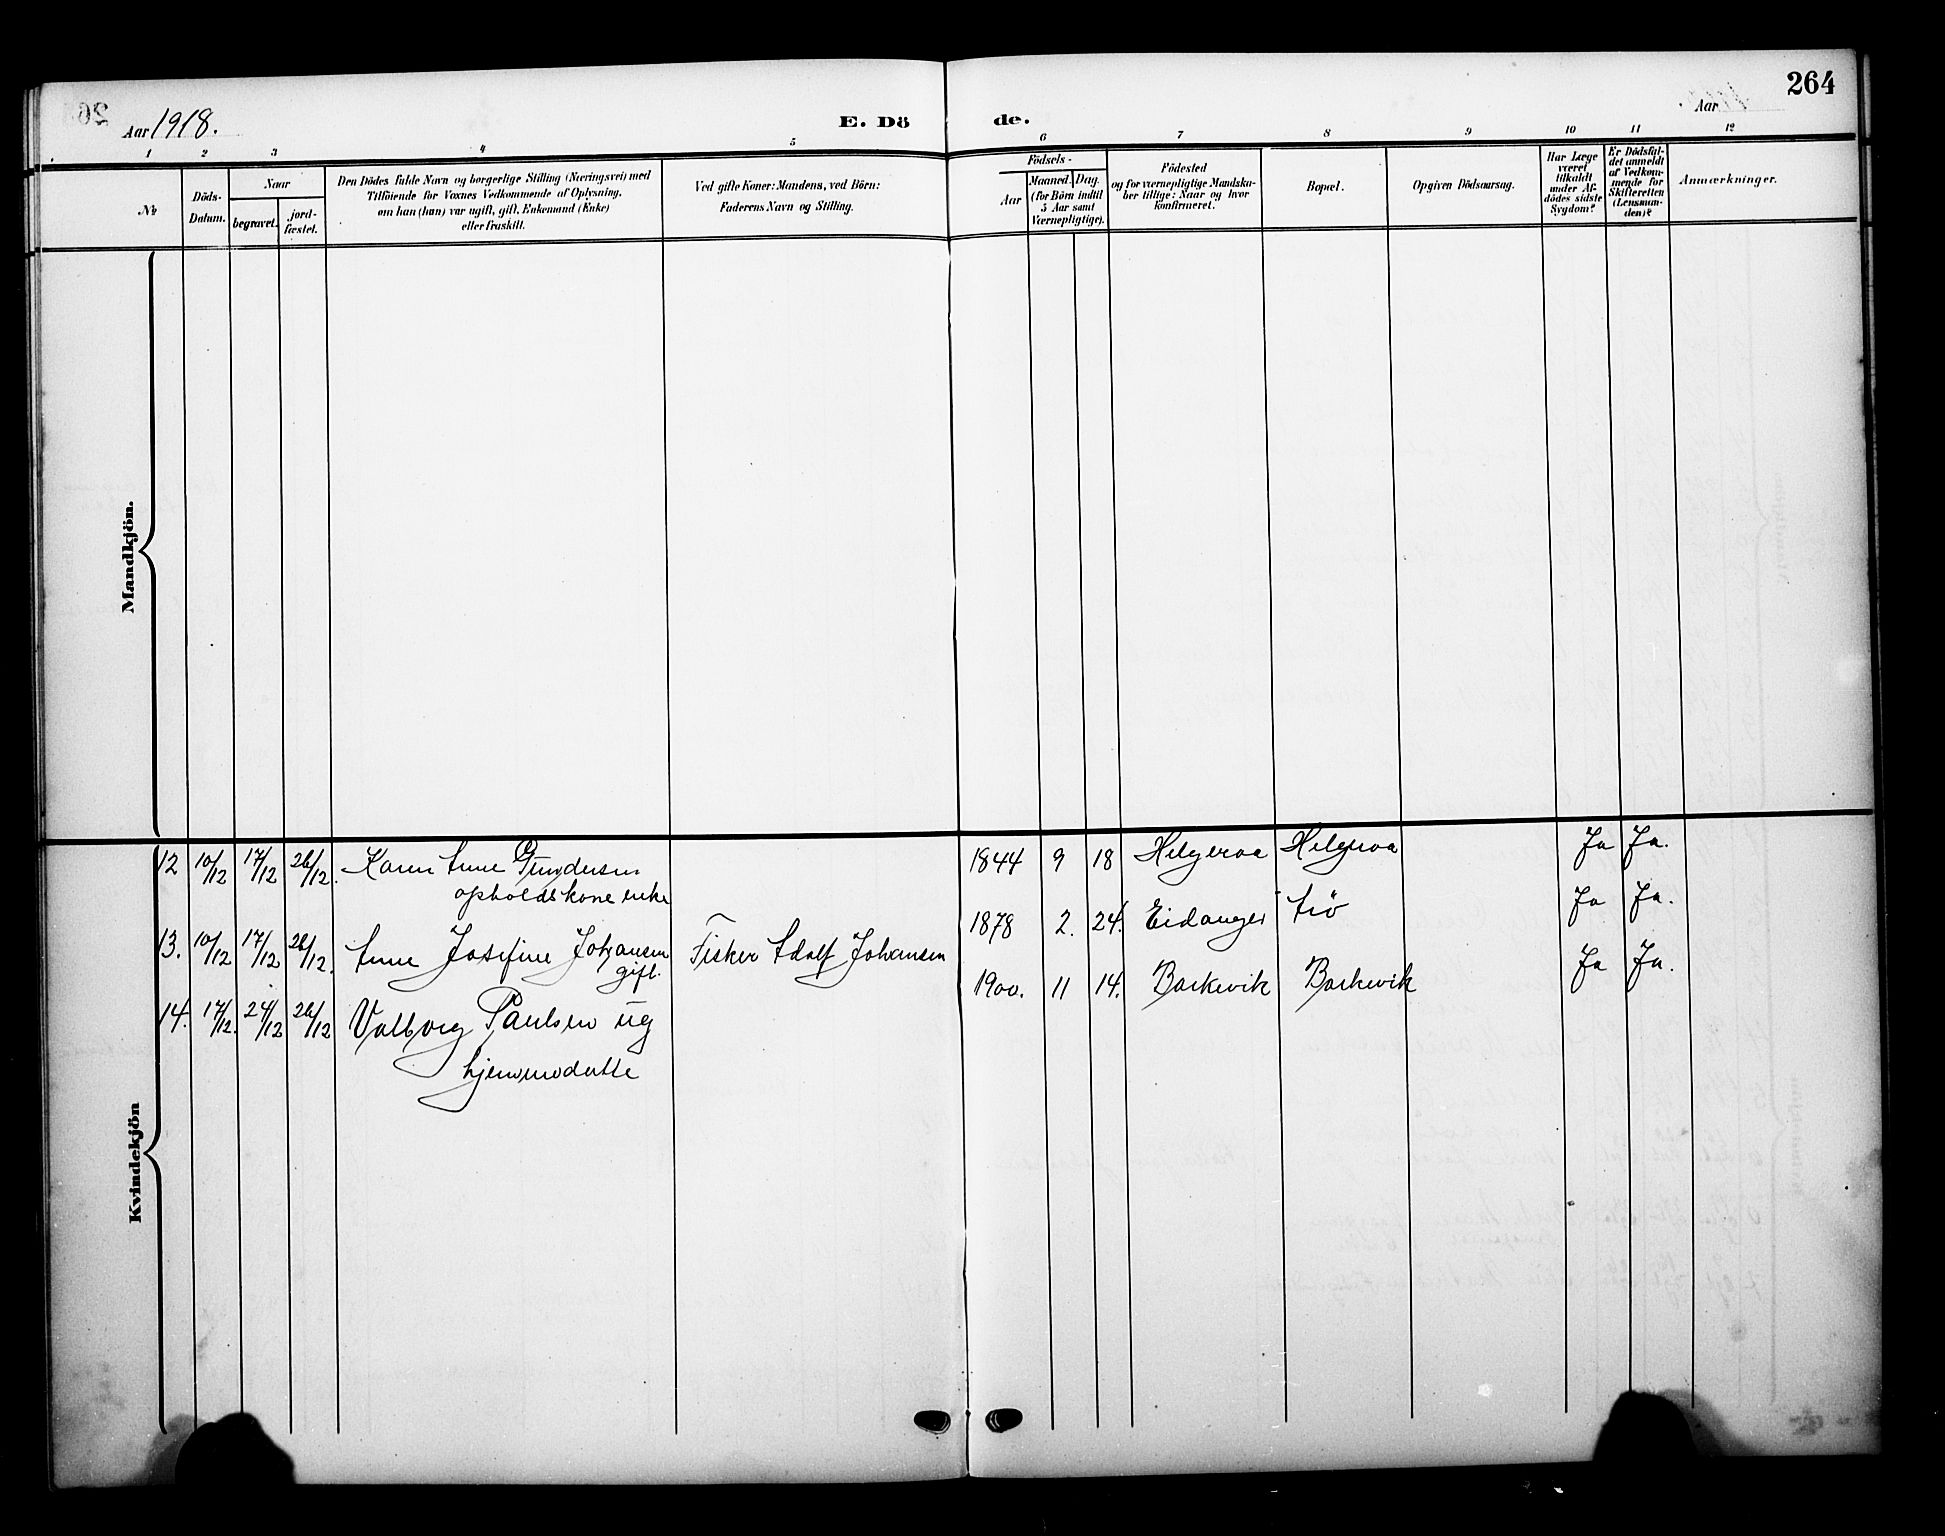 264
Aar 1918.
E. Dö
de.
Aar
1
2
3
4
5
6
7
8
9
10
11
12
No
Döds-
Datum.
Naar
begravet.
jord-
fæstet.
Den Dödes fulde Navn og borgerlige Stilling (Næringsvei) med
Tilföiende for Voxnes Vedkommende af Oplysning,
om han (hun) var ugift, gift, Enkemand (Enke)
eller fraskilt.
Ved gifte Koner: Mandens, ved Börn:
Faderens Navn og Stilling.
Födsels-
Aar
Maaned. Dag.
(for Börn indtil
5 Aar samt
Værnepligtige).
Födested
og for værnepligtige Mandska-
ber tillige: Naar og hvor
konfirmeret.
Bopæl.
Opgiven Dödsaarsag.
Har Læge
været
tilkaldt
under Af-
dödes sidste
Sygdom?
Er Dödsfal-
det anmeldt
af Vedkom-
mende for
Skifteretten
(Lensman-
den)?
Anmærkninger.
Mandkjön.
Kvindekjön
12 10/12 17/12 26/12. Karen Anne Gundersen 1844 9 18 Helgeroa Helgeroa Ja Ja.
opholdskone enke
13. 10/12 17/12 26/12. Anne Josefine Johansen Fisker Adolf Johansen 1878 2. 24. Eidanger Ja Ja.
gift.
14. 17/12. 24/12 26/12 Valborg Paulsen ug 1900. 11 14. Barkevik Barkevik Ja Ja.
hjemmedatte